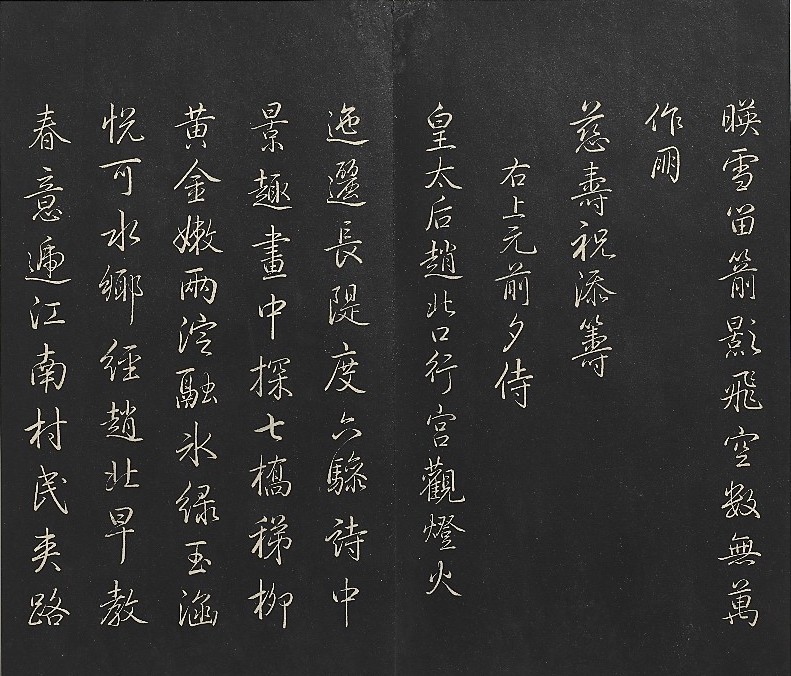 暎雪留箭影飛空数無萬
作朋
慈壽祝添籌
右上元前夕侍
皇太后趙北口行宫觀燈火
迤邐長隄度六驂詩中
景趣畫中探七橋稊柳
黄金嫩兩淀融冰緑玉涵
悦可水鄉經趙北早教
春意逓江南村民夹路